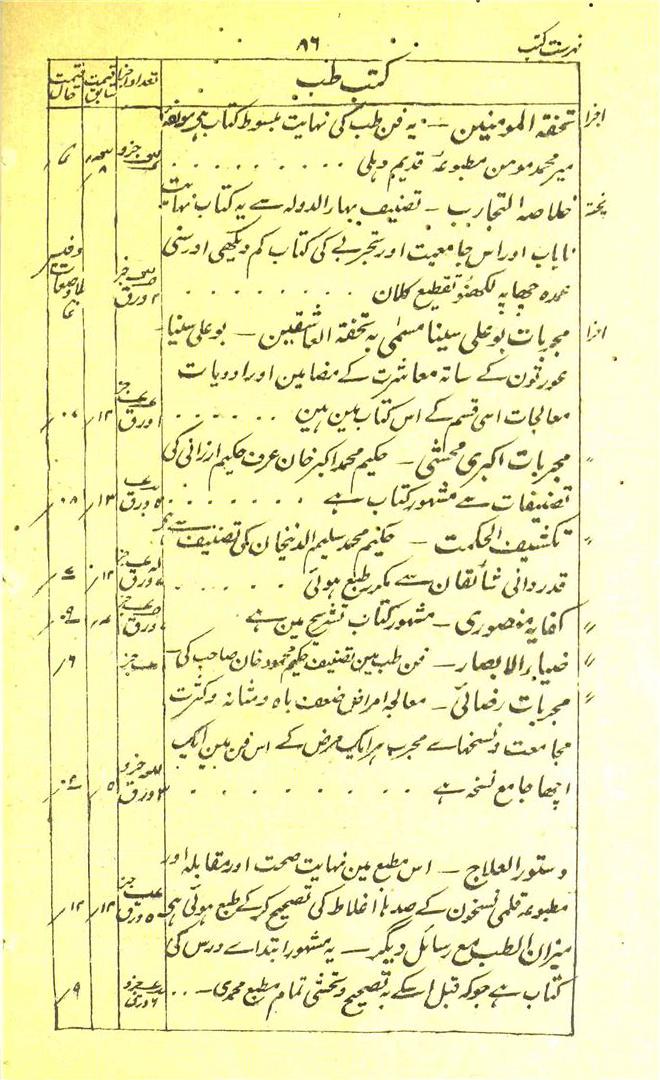 فہرست کتب
۸۶
کتب طب
تعداد اجزا
قیمت سابق
قیمت حال
اجزا
تحفۃ المومنین - یہ فن طب کی نہایت مبسوط کتاب ہی مولفہٗ
میر محمد مومن مطبوعۂ قدیم دہلی
پختہ
خلاصۃ التجارب - تصنیف بہار الدولہ سے یہ کتاب نہایت
نایاب اور اس جامعیت اور تجربے کی کتاب کم دیکھی اور سنی
عمدہ چھاپہ لکھنؤ تقطیع کلان
۲ ورق
اجزا
مجربات بو علی سینا مسمٰی بہ تحفۃ العاشقین - بو علی سینا
عورتون کے ساتہ معاشرت کے مضامین اور ادویات
معالجات اسی قسم کے اس کتاب مین ہین
۱ ورق
۱۲؍
۰۷؍
〃 مجربات اکبری محشی - حکیم محمد اکبر خان عرف حکیم ارزانی کی
تصنیفات سے مشہور کتاب ہے
۵ ورق
۱۳؍
۰۸؍
〃 تکشیف الحکمت - حکیم محمد سلیم الدنیخان کی تصنیف ہے
قدردانی شائقان سے مکرر طبع ہوئی
ورق
۱۲؍
〃 کفایہ منصوری - مشہور کتاب تشریح مین ہے
ورق
〃 ضیاء الابصار - فن طب مین تصنیف حکیم محمود خان صاحب کی -
جز
۶؍
〃 مجربات رضائی - معالجہ امراض ضعف باہ و مثانہ و کثرت
مجامعت و نسخہاے مجرب ہر ایک مرض کے اس فن مین ایک
اچھا جامع نسخہ ہے
۳ ورق
۵؍
دستور العلاج - اس مطبع مین نہایت صحت اور مقابلہ اور
مطبوعہ قلمی نسخون کے صدہا اغلاط کی تصحیح کر کے طبع ہوئی ہی
۵ ورق
۱۴؍
۱۲؍
میزان الطب مع رسائل دیگر - یہ مشہور ابتداے درس کی
کتاب ہے جو کہ قبل اسکے بہ تصحیح و تحشی تمام مطبع محمدی -
۶ ورق
۹؍